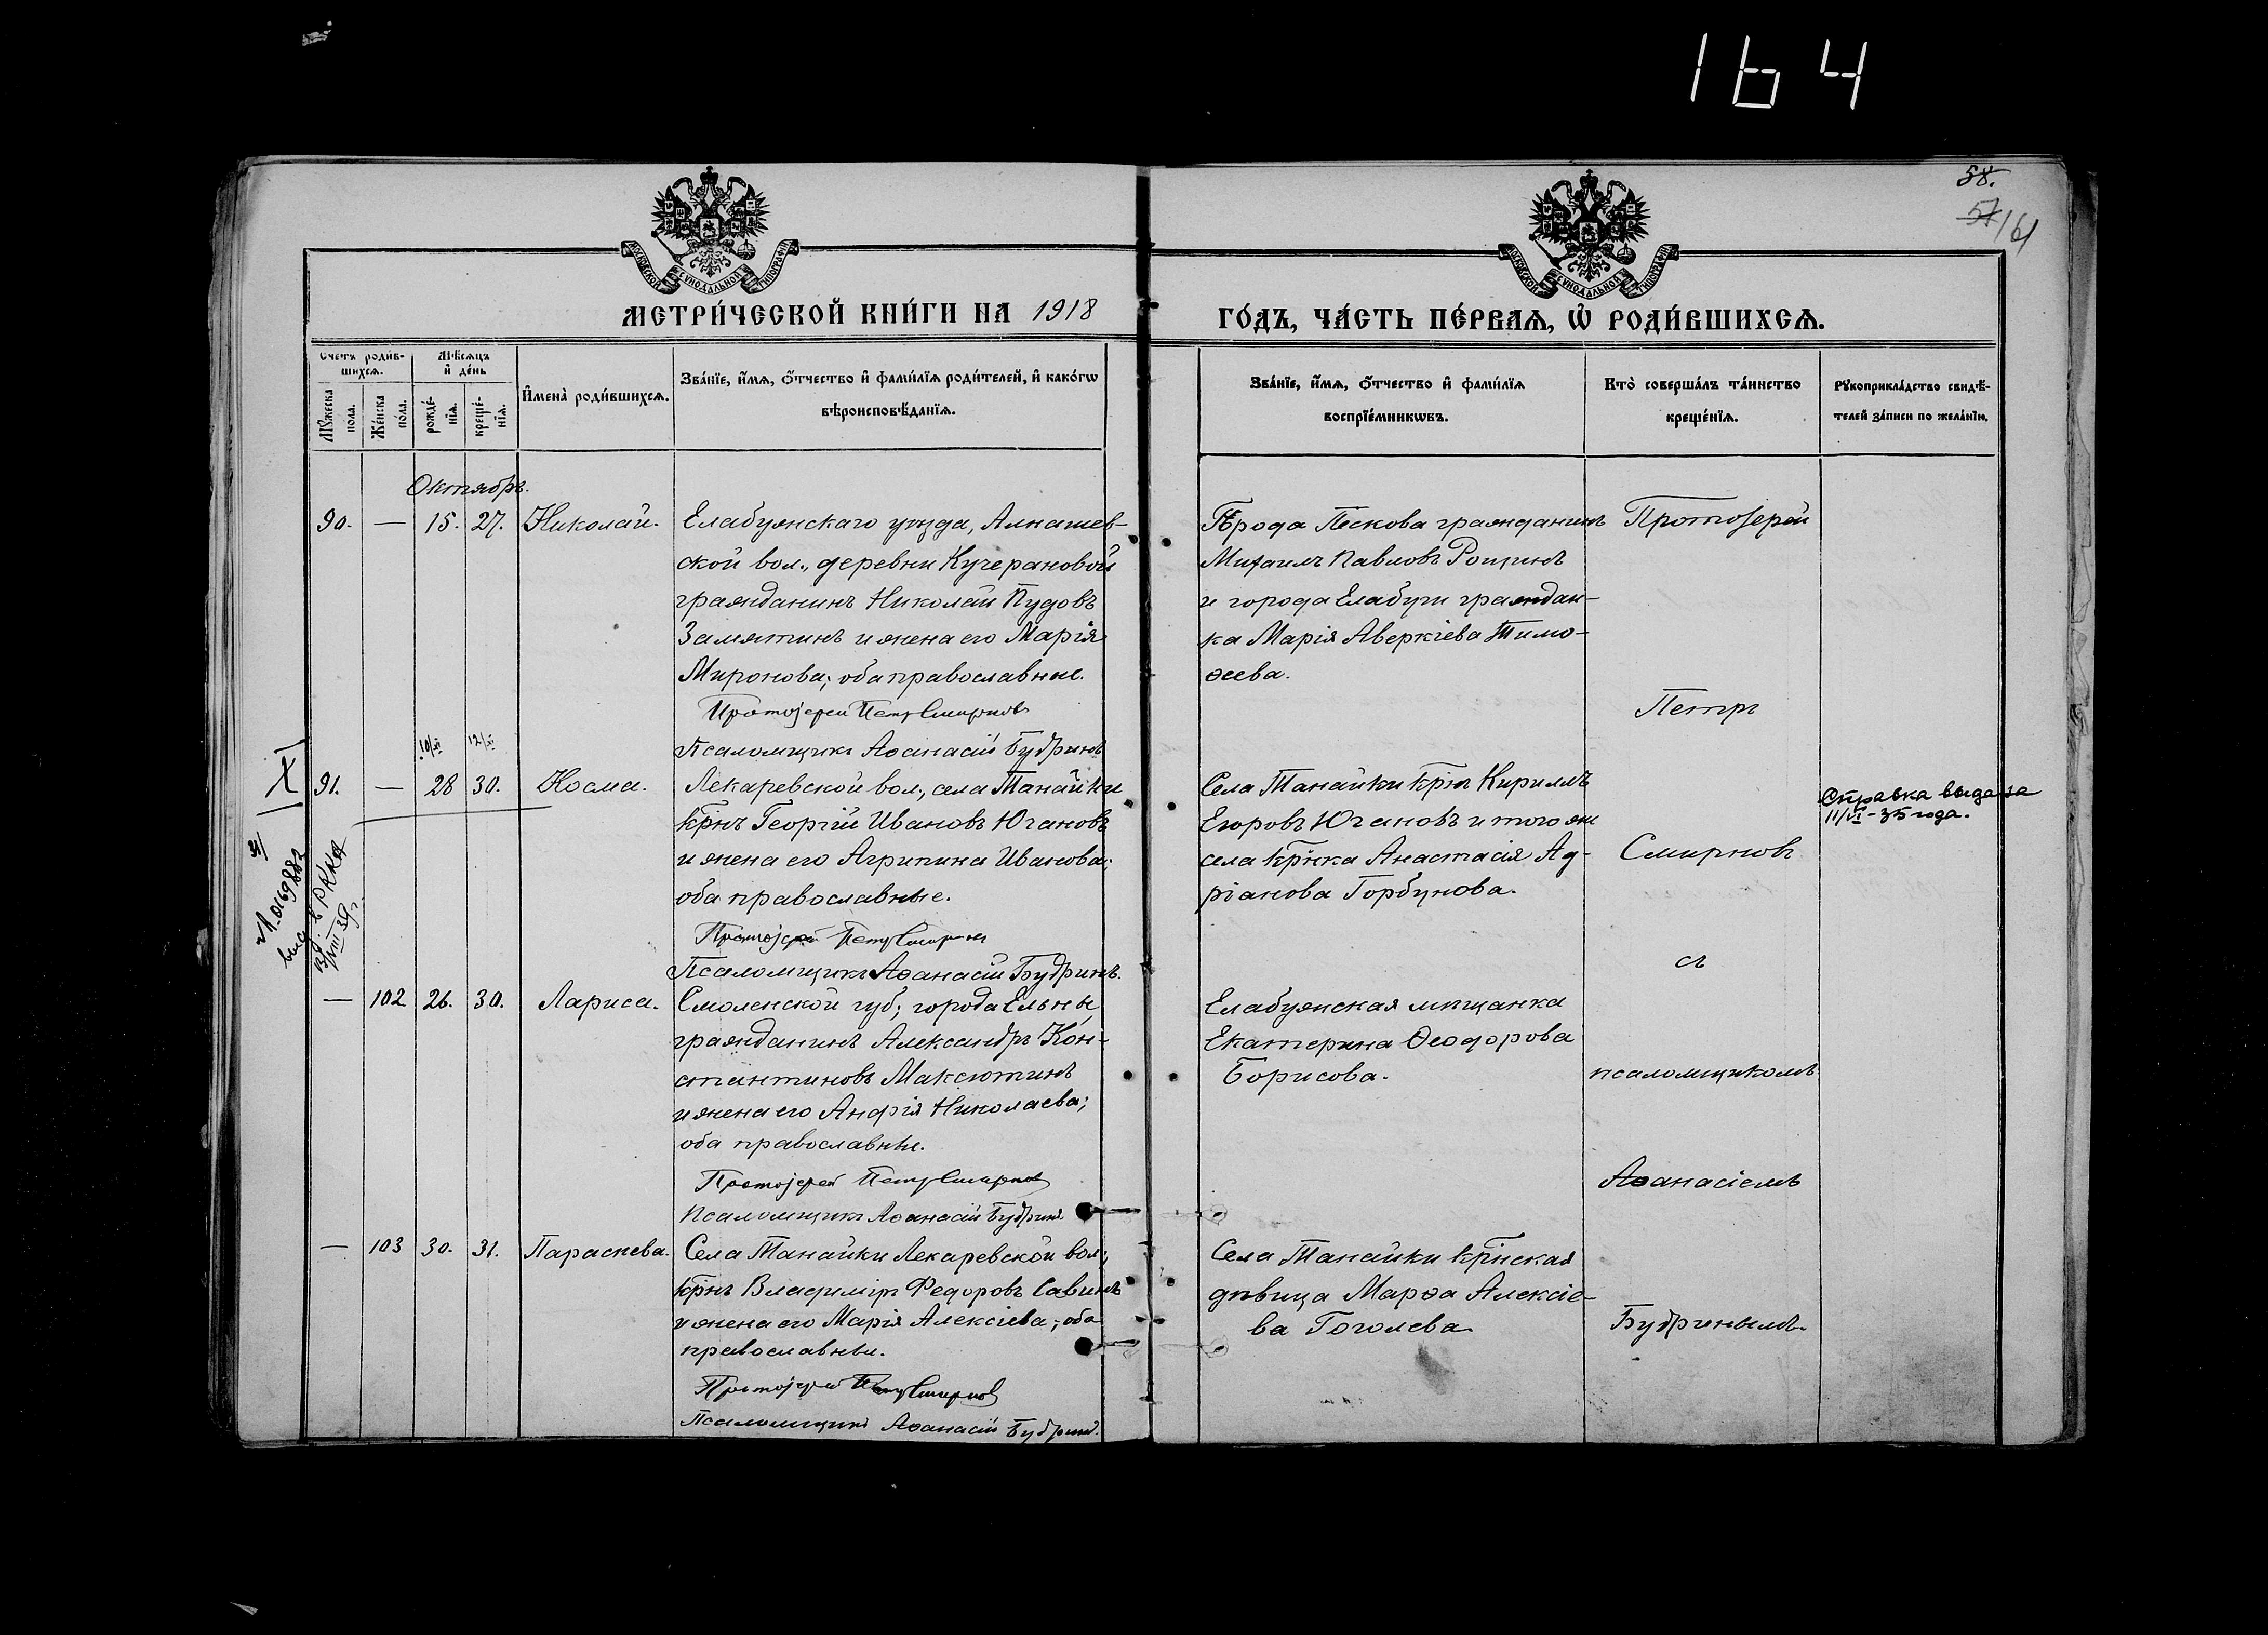 164
58.
57/61
МОСКОВСКОЙ СѴНОДАЛЬНОЙ ТИПОГРАФІИ
МОСКОВСКОЙ СѴНОДАЛЬНОЙ ТИПОГРАФІИ
МЕТРИ́ЧЕСКОЙ КНИ́ГИ НА 1918
ГО́ДЪ, ЧА́СТЬ ПЕ́РВАЯ, Ѡ҆ РОДИ́ВШИХСЯ.
Счетъ роди́в-
шихся.
Мѣ́сяцъ
и҆ де́нь
Мꙋ́жеска
пола.
Же́нска
по́ла.
рожде́-
нїя.
креще́-
нїя.
И҆мена̀ роди́вшихся.
Зва́нїе, и҆́мя, ѻ҆́тчество и҆ фами́лїя роди́телей, и҆ како́гѡ
вѣроисповѣ́данїя.
Зва́нїе, и҆́мя, ѻ҆́тчество и҆ фами́лїя
воспрїе́мникѡвъ.
Кто̀ соверша́лъ та́инство
креще́нїя.
Рꙋкоприкла́дство свидѣ́-
телей за́писи по жела́нїю.
Октябрь.
90. — 15. 27. Николай.
Елабужскаго уѣзда, Алнашев-
ской вол., деревни Кучерановой
гражданинъ Николай Пудовъ
Замятинъ и жена его Марія
Миронова; оба православные.
Протоіерей Петръ Смирновъ
Псаломщикъ Аѳанасій Будринъ
Города Пскова гражданинъ
Михаилъ Павловъ Рощинъ
и города Елабуги граждан-
ка Марія Аверкіева Тимо-
ѳеева.
Протоіерей
Петръ
10/XI 12/XI
X 91. — 28 30. Косма.
Лекаревской вол., села Танайки
крнъ Георгій Ивановъ Югановъ
и жена его Агрипина Иванова;
оба православные.
Протоіерей Петръ Смирновъ
Псаломщикъ Аѳанасій Будринъ.
Села Танайки крнъ Кириллъ
Егоровъ Югановъ и того же
села крнка Анастасія Ад-
ріанова Горбунова.
Смирновъ
Справка выдана
11/VI-35 года.
№ 0169882
РККА
VIII 39 г.
съ
— 102 26. 30. Лариса.
Смоленской губ; города Ельны
гражданинъ Александръ Кон-
стантиновъ Максютинъ
и жена его Анфія Николаева;
оба православные.
Протоіерей Петръ Смирновъ
Псаломщикъ Аѳанасій Будринъ
Елабужская мѣщанка
Екатерина Ѳеодорова
Борисова.
псаломщикомъ
Аѳанасіемъ
— 103 30. 31. Параскева.
Села Танайки Лекаревской вол;
крнъ Владиміръ Федоровъ Савинъ
и жена его Марія Алексіева; оба
православные.
Протоіерей Петръ Смирновъ
Псаломщикъ Аѳанасій Будринъ.
Села Танайки крнская
дѣвица Марѳа Алексіе-
ва Гоголева
Будринымъ.